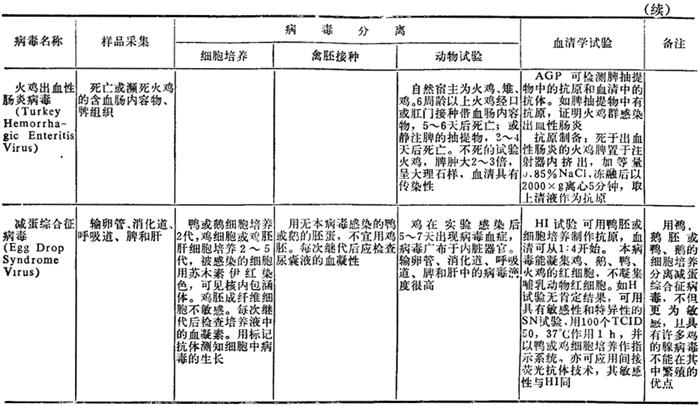 (续)
病毒名称
样品采集
病毒分离
细胞培养
禽胚接种
动物试验
血清学试验
备注
火鸡出血性
肠炎病毒
(Turkey
Hemorrha-
gic Enteritis
Virus)
死亡或濒死火鸡
的含血肠内容物、
脾组织
自然宿主为火鸡、雉、
鸡。6周龄以上火鸡经口
或肛门接种带血肠内容
物，5～6天后死亡；或
静注脾的抽提物，2～4
天后死亡。不死的试验
火鸡，脾肿大2～3倍，
呈大理石样，血清具有
传染性
AGP 可检测脾抽提
物中的抗原和血清中的
抗体。如脾抽提物中有
抗原，证明火鸡群感染
出血性肠炎
抗原制备：死于出血
性肠炎的火鸡脾置于注
射器内挤出，加等量
0.85%NaCl，冻融后以
2000×g离心5分钟，取
上清液作为抗原
减蛋综合征
病毒
(Egg Drop
Syndrome
Virus)
输卵管、消化道、
呼吸道、脾和肝
鸭或鹅细胞培养
2代，鸡细胞或鸡胚
肝细胞培养2～5
代，被感染的细胞
用苏木素伊红染
色，可见核内包涵
体。鸡胚成纤维细
胞不敏感。每次继
代后检查培养液中
的血凝素。用标记
抗体测知细胞中病
毒的生长
用无本病毒感染的鸭
或鹅的胚蛋，不宜用鸡
胚。每次继代后应检查
尿囊液的血凝性
鸡在实验感染后
5～7天出现病毒血症，
病毒广布于内脏器官。
输卵管、消化道、呼吸
道、脾和肝中的病毒滴
度很高
HI试验可用鸭胚或
细胞培养制作抗原，血
清可从1:4开始。本病
毒能凝集鸡、鹅、鸭、
火鸡的红细胞，不凝集
哺乳动物红细胞。如H
试验无肯定结果，可用
具有敏感性和特异性的
SN试验，用100个TCID
50，37℃作用1h，并
以鸭或鸡细胞培养作指
示系统。亦可应用间接
荧光抗体技术，其敏感
性与HI同
用鸭、
鹅胚或
鸭、鹅的
细胞培养
分离减蛋
综合征病
毒，不但
更为敏
感，且具
有许多鸡
的腺病毒
不能在其
中繁殖的
优点